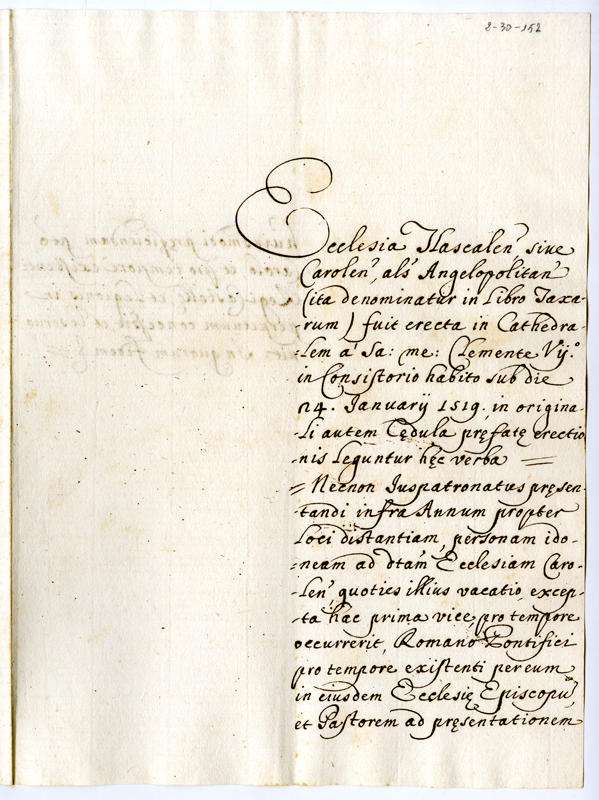 2-30-152
Ecclesia Tlascalen͂ siue
Carolen͂, als̃ Angelopolitan͂
(ita denominatur in Libro Taxa-
rum) fuit erecta in Cathedra-
-lem a' Sa: me: Clemente Vij.º
in Consistorio habito sub die
24. Januarij 1519. in origina-
-li autem Cędula pręfatę erectio
-nis leguntur hęc verba =
= Necnon Juspatronatus pręsen-
-tandi infra Annum propter
Loci distantiam, personam ido-
=neam ad dtam̃ Ecclesiam Caro-
-len͂, quoties illius vacatio, excep-
-ta hac prima vice, pro tempore
occurrerit, Romano Pontifici
pro tempore existenti per eum
in eiusdem Ecclesię Episcopũ
et Pastorem ad pręsentationem